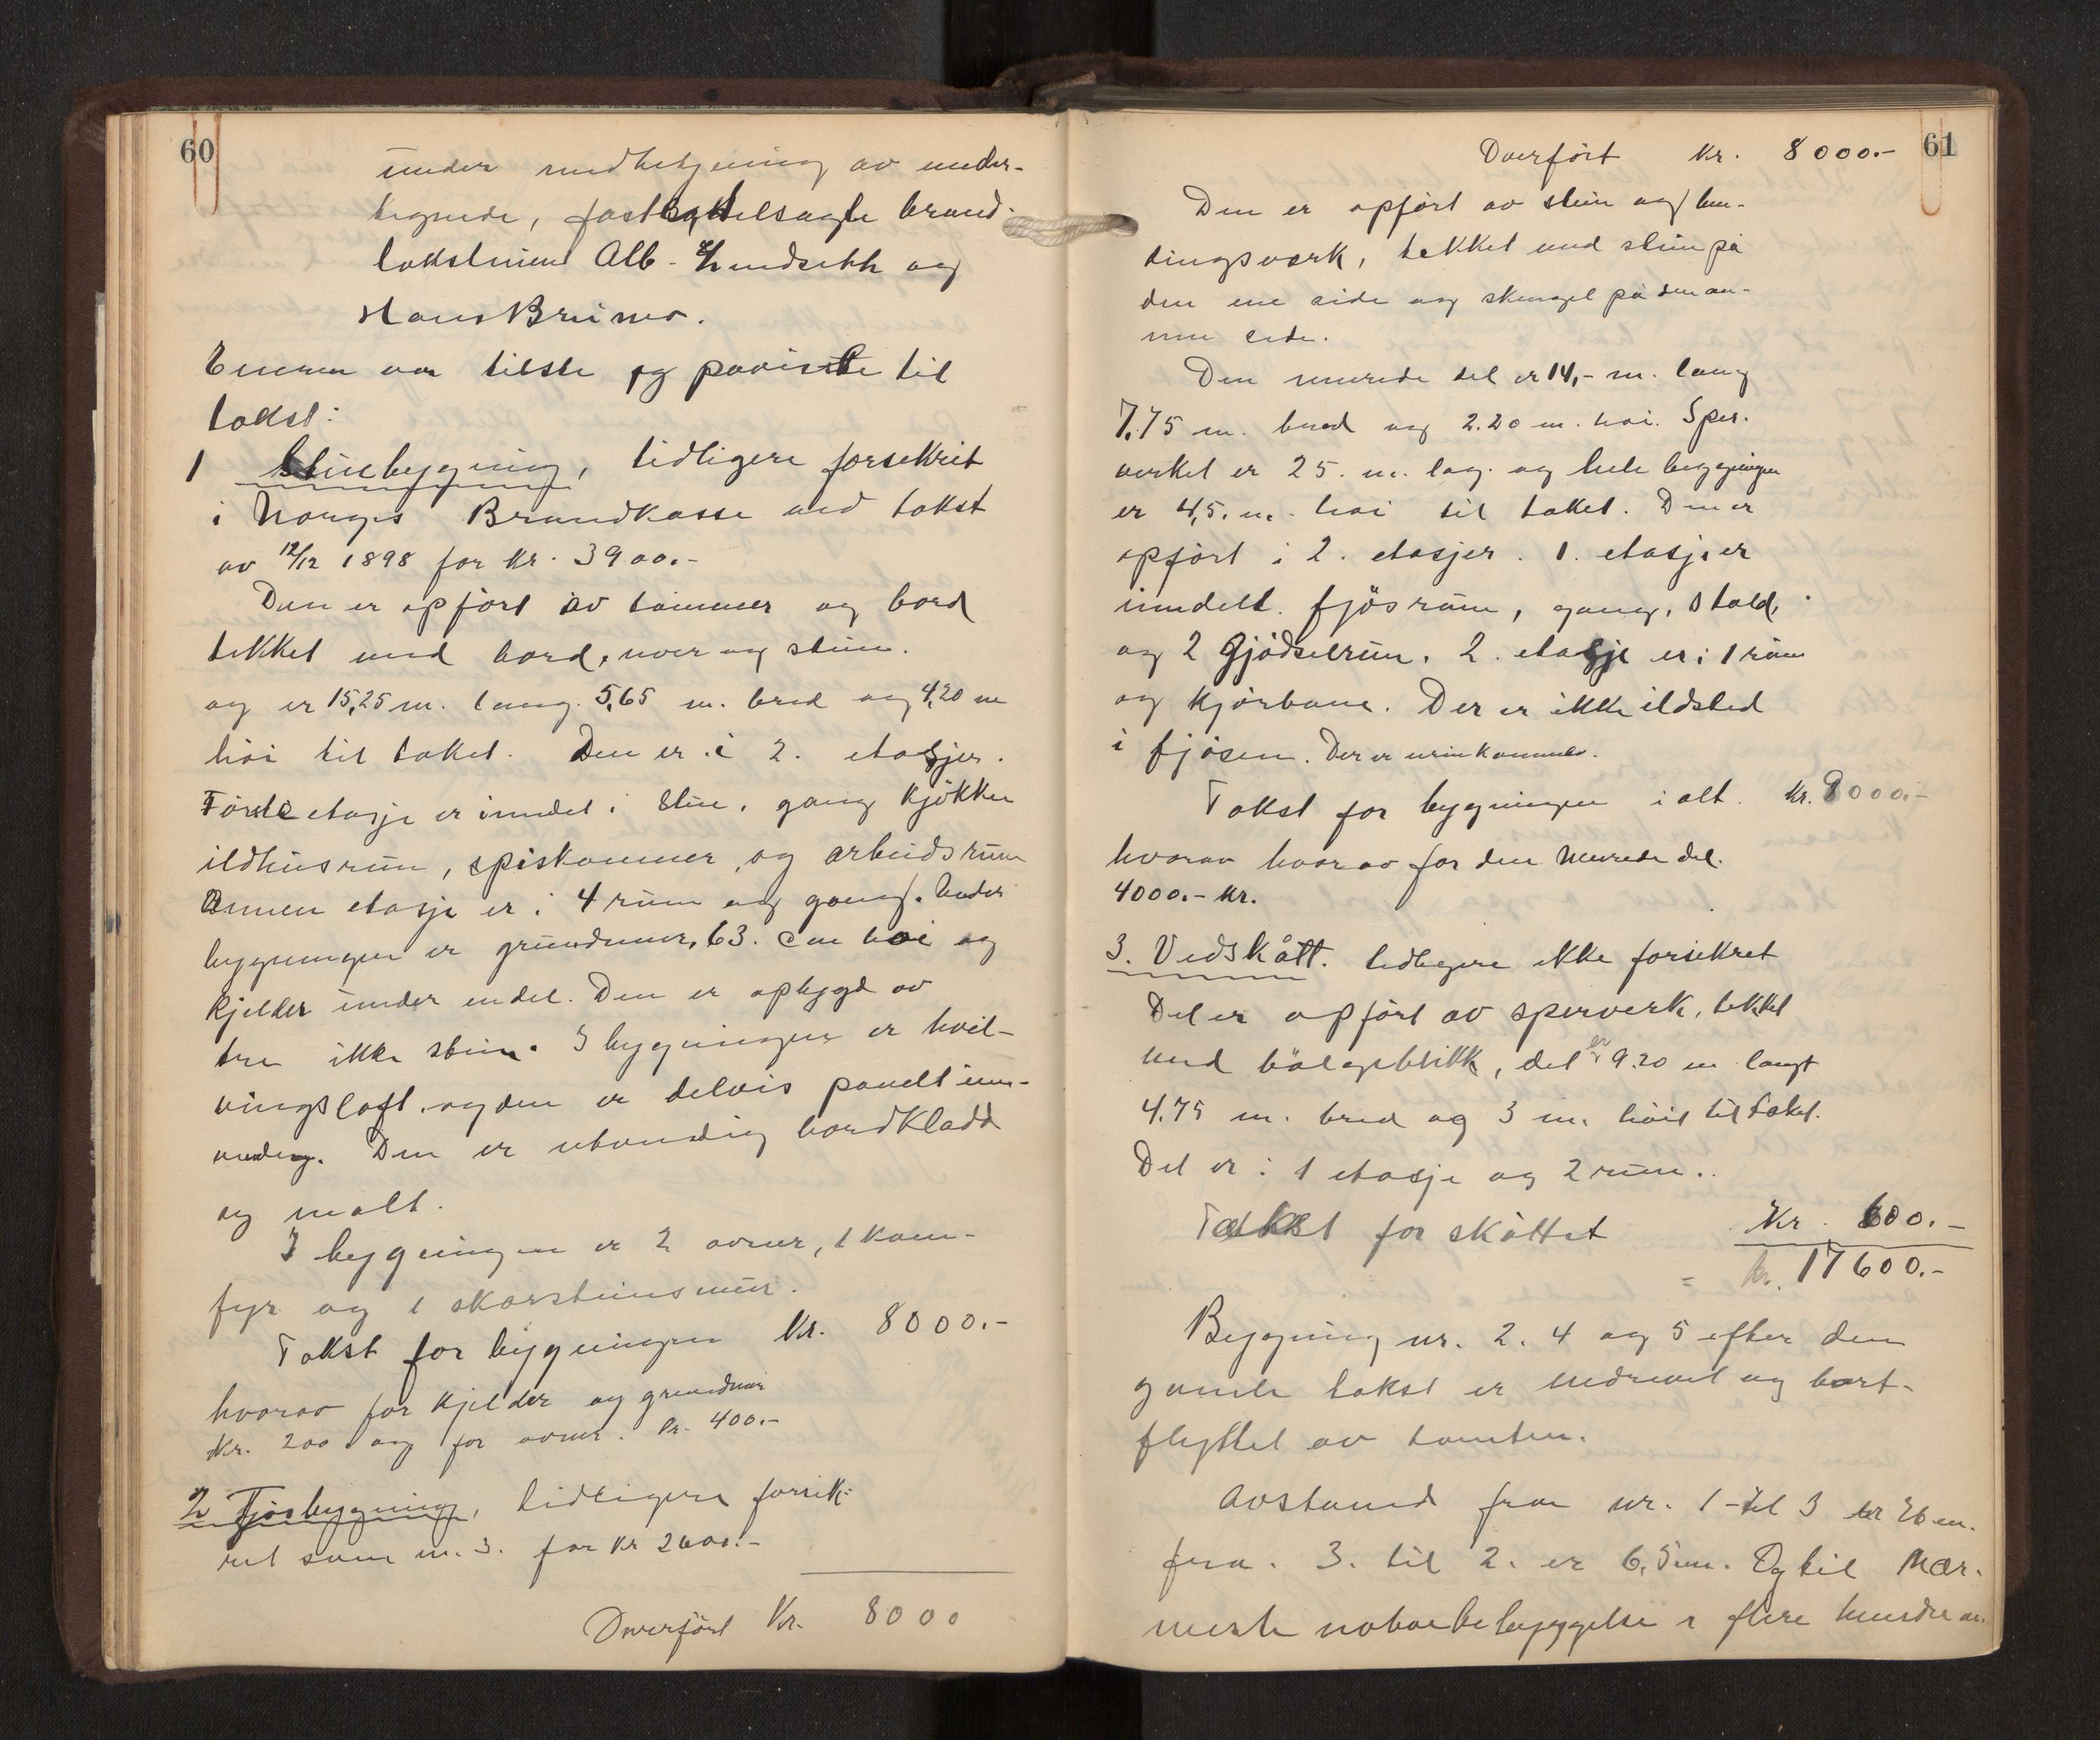 60
under medbetjening av under-
tegnede, fast edtilsagte brand-
takstmend Alb. Lundseth og
Hans Brunes.
Eieren var tilste og paaviste til
takst:
1 Stuebygning, tidligere forsekret
i Norges Brandkasse ved takst
av 12/12 1898 for kr. 3900.-
Den er opført av tømmer og bord
tekket med bord, never og sten.
og er 15,25 m. lang. 5,65 m. bred og 4,20 m
høi til taket. Den er i 2. etasjer.
Første etasje er inndel i stue, gang kjøkken
ildhusrum, spiskammer, og arbeidsrum
Annen etasje er i 4 rum og gang. Under
bygningen er grundmur, 63. cm høi og
kjelder under endel. Den er opbygd av
tre ikke sten. I bygningen er hvel-
vingsloft. og den er delvis panelt inn-
vendig. Den er utvendig bordkladd
og malt.
I bygningen er 2 ovner, 1 kom-
fyr og 1 skorstensmur.
Takst for bygningen kr. 8000.-
hvorav for kjelder og grundmur
kr. 200 og for ovner. kr. 400.-
2 Fjøsbygning, tidligere forsik-
ret som nr. 3. for kr 2600.-
Overført Kr. 8000
61
Overført kr. 8000.-
Den er opført av sten og bin-
dingsverk, tekket med sten på
den ene side og shingel på den an-
nen side.
Den murede del er 14,- m. lang
7,75 m. bred og 2.20 m. høi. Sper-
verket er 25. m. lag. og hele bygningen
er 4,5. m. høi til taket. Den er
opført i 2. etasjer. 1. etasje er
inndelt. fjøsrum, gang, stald,
og 2 Gjødselrum. 2. etasje er i 1 rum
og kjørbane. Der er ikke ildsted
i fjøsen. Der er urinkammer.
Takst for bygningen i alt. kr. 9000.-
hvorav hvorav for den Murede del.
4000.- kr.
3. Vedskått. tidligere ikke forsikret
Det er opført av sperverk, tekket
med bølgeblikk, det er 9.20 m langt
4.75 m. bred og 3 m. høit til taket.
Det er i 1 etasje og 2 rum.
Takst for skåttet Kr. 600.-
= kr. 17600.-
Bygning nr. 2. 4 og 5 efter den
gamle takst er nedrevet og bort-
flyttet av tomten.
Avstand fra nr. 1 - til 3 er 26 m.
fra. 3. til 2. er 6,5 m. Og til Nær-
meste nabobebyggelse er flere hundre m.